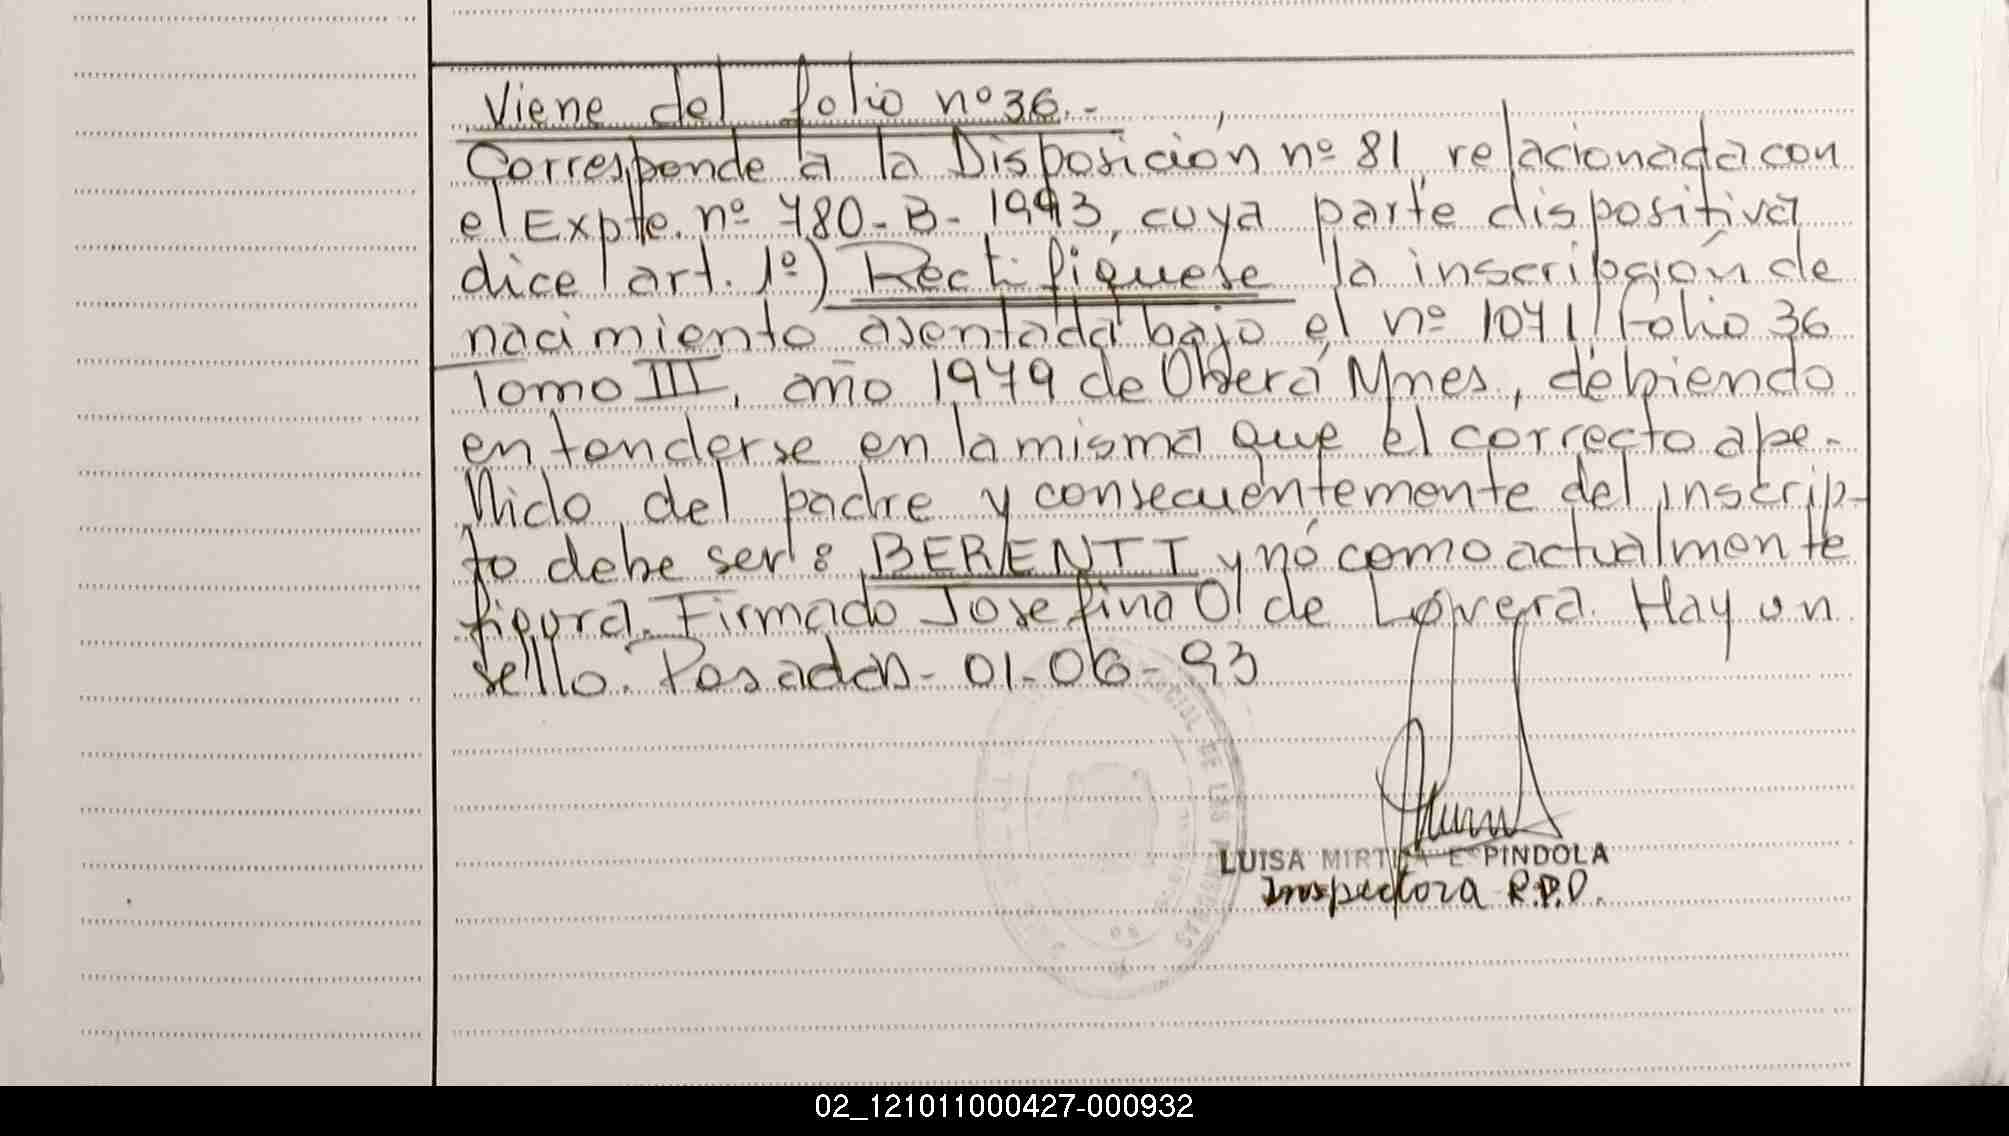 Viene del folio nº 36.-
Corresponde a la Disposición nº 81, relacionada con
el Expte. nº 780-B-1993, cuya parte dispositiva
dice (art. 1º) Rectifíquese la inscripción de
nacimiento asentada bajo el nº 1071 folio 36
Tomo III, año 1979 de Oberá Mnes, debiendo
entenderse en la misma que el correcto ape-
llido del padre y consecuentemente del inscrip-
to debe ser: BERENTT y nó como actualmente
figura. Firmado Josefina O. de Lovera. Hay un
sello. Posadas- 01-06-93
LUISA MIRTHA ESPINDOLA
Inspectora R.P.P.
02_121011000427-000932